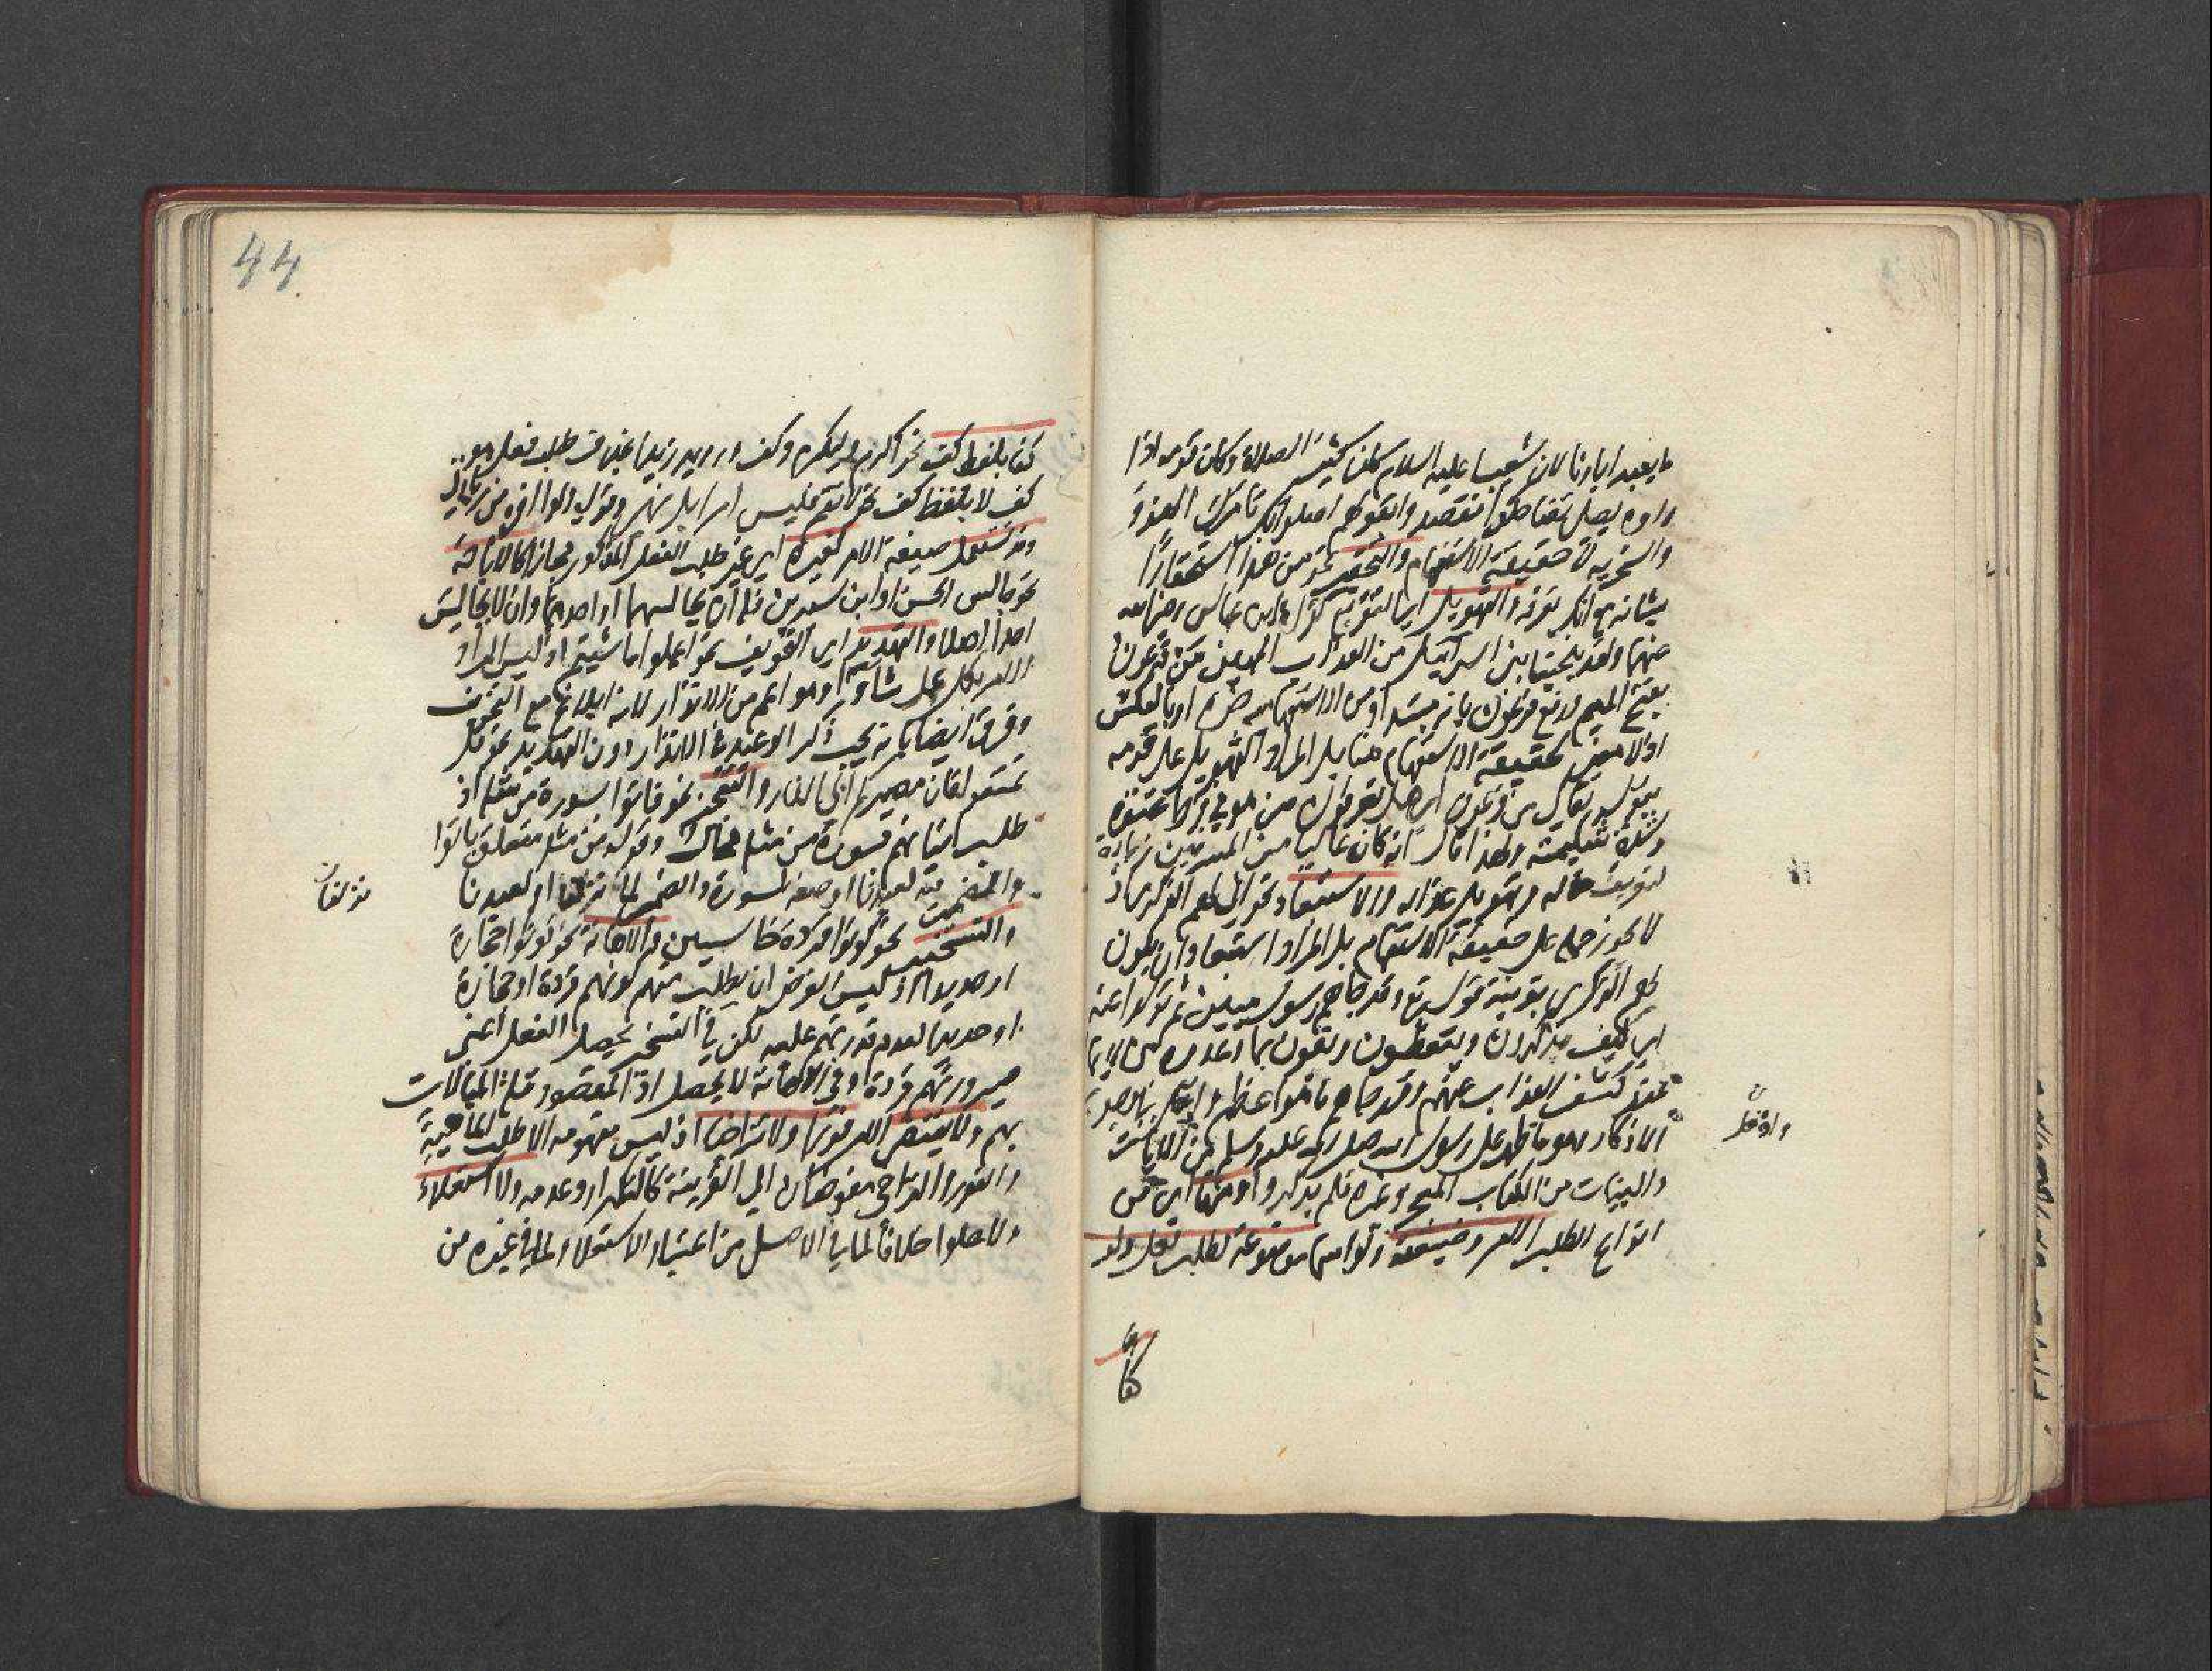 ما يعبد اباؤنا لان شعيبا عليه السلام كان كثير الصلاة وكان قومه اذا
راوه يصلي تضاحكوا فقصدوا بقولهم اصلواتك تامرك الهزؤ
والسخرية لا حقيقة الاستفهام والتحقير نحو من هذا استحقارا
بشانه مع انك تعرفه والتهويل اي التفزيع كقراءة ابن عباس رضي الله
عنهما ولقد نجينا بني اسرائيل من العذاب المهين من فرعون
بفتح الميم ورفع فرعون بانه مبتدا ومن الاستفهامية خبره او بالعكس
اذ لا معنى لحقيقة الاستفهام هنا بل المراد التهويل على قومه
بقوله تعالى من فرعون اي هل تعرفون من هو في فرط عتوه
وشدة شكيمته ولهذا قال انه كان عاليا من المسرفين زيادة
لتعريف حاله وتهويل عذابه والاستبعاد نحو انى لهم الذكرى اذ
لا يجوز حمله على حقيقة الاستفهام بل المراد استبعاد ان يكون
لهم الذكرى بقرينة قوله تع وقد جاءهم رسول مبين ثم تولوا عنه
اي كيف يذكرون ويتعظون ويفون بما وعدوه من الايمان
عند كشف العذاب عنهم وقد جاءهم ما هو اعظم
وادخل
الاذكار وهو ما ظهر على رسول الله صلى الله عليه وسلم من الايات
والبينات من الكتاب المعجز وغيره فلم يذكروا ومنها اي من
انواع الطلب الامر وصيغته ولو اسما موضوعة لطلب فعل ولو
كفا
كفا بلفظ كف نحو اكرم وليكرم وكف ورويد زيدا بخلاف طلب فعل هو
كف لا بلفظ كف نحو لا تقم فليس امرا بل نهي
وقد تستعمل صيغة الامر لغيره اي غير طلب الفعل المذكور مجازا كالاباحة
نحو جالس الحسن او ابن سيرين فله ان يجالسهما او احدهما وان لا يجالس
احدا اصلا والتهديد اي التخويف نحو اعملوا ما شئتم اذ ليس المراد
الامر بكل عمل شاؤا وهو اعم من الانذار لانه ابلاغ مع التخويف
وفرق ايضا بانه يجب ذكر الوعيد في الانذار دون التهديد نحو قل
تمتعوا فان مصيركم الى النار والتعجيز نحو فاتوا بسورة من مثله اذ
طلب اتيانهم بسورة من مثله محال وقوله من مثله متعلق بفاتوا
والضمير فيه لعبدنا او صفة لسورة والضمير لما نزلنا او لعبدنا
نزلنا
والتسخير نحو كونوا قردة خاسئين والاهانة نحو كونوا حجارة
او حديدا اذ ليس الغرض ان يطلب منهم كونهم قردة او حجارة
او حديدا لعدم قدرتهم عليه لكن في التسخير يحصل الفعل اعني
صيرورتهم قردة وفي الاهانة لا يحصل اذ المقصود قلة المبالات
بهم ولا يقتضي الامر فورا ولا تراخيا اذ ليس مفهومه الا طلب الماهية
والفور والتراخي مفوضان الى القرينة كالتكرار وعدمه ولا استعلاء
ولا علوا خلافا لما في الاصل من اعتبار الاستعلاء ولما في غيره من
44